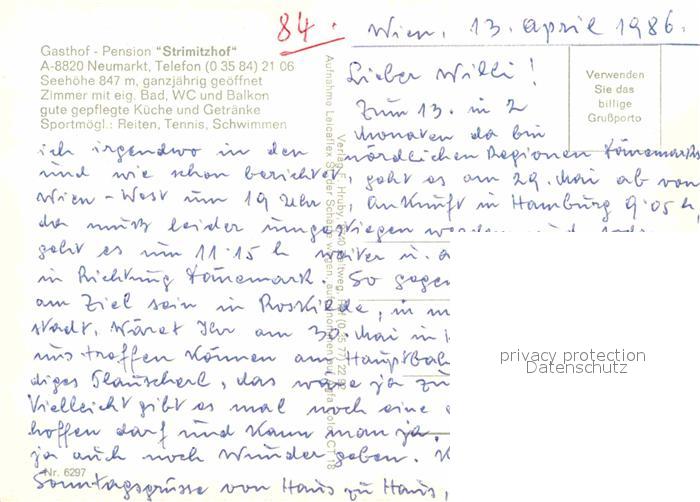 84.
Wien, 13. April 1986.
Gasthof - Pension "Strimitzhof"
A-8820 Neumarkt, Telefon (0 35 84) 21 06
Seehöhe 847 m, ganzjährig geöffnet
Zimmer mit eig. Bad, WC und Balkon
gute gepflegte Küche und Getränke
Sportmögl.: Reiten, Tennis, Schwimmen
Verwenden
Sie das
billige
Grußporto
Lieber Willi!
Zum 13. in 2
Monaten da bin
ich irgendwo in den nördlichen Regionen Dänemarks
und wie schon berichtet, geht es am 29. Mai ab von
Wien-West um 19 Uhr, Ankunft in Hamburg 9.05 h,
da muß leider umgestiegen werden und
geht es um 11.15 h weiter
in Richtung Dänemark. So gegen
am Ziel sein in Roskilde, in
stadt. Wäret Ihr am 30. Mai in
uns treffen können am Hauptbah
diges Plauscherl, das wäre ja zu
Vielleicht gibt es mal noch eine
hoffen darf und kann man ja.
ja auch noch Wunder geben.
Sonntagsgrüsse von Haus zu Haus,
Nr. 6297
Aufnahme Leicaflex SL der Schatzwagen, aufgenommen auf Agfacolor CT 18
privacy protection
Datenschutz